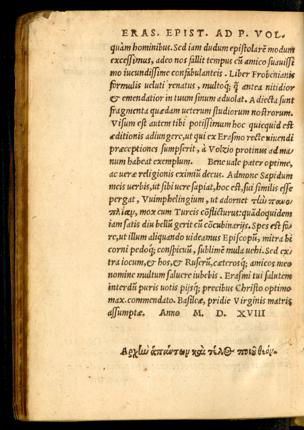 ERAS. EPIST. AD P. VOL.
quàm hominibus. Sed iam dudum epistolarē modum
excessimus, adeo nos fallit tempus cū amico suauissi
mo iucundissime confabulanteis. Liber Frobenianis
formulis ueluti renatus, multoq; q̃ antea nitidior
& emendatior in tuum sinum aduolat. Adiecta sunt
fragmenta quædam ueterum studiorum nostrorum.
Visum est autem tibi potissimum hoc quicquid est
æditionis adiungere, ut qui ex Erasmo recte uiuendi
præceptiones sumpserit, à Volzio protinus ad ma
num habeat exemplum. Bene uale pater optime,
ac ueræ religionis eximiū decus. Admone Sapidum
meis uerbis, ut sibi uere sapiat, hoc est, sui similis esse
pergat, Vuimphelingium, ut adornet
mox cum Turcis cōflicturus: quādoquidem
iam satis diu bellū gerit cū cōcubinarijs. Spes est fo
re, ut illum aliquando uideamus Episcopū, mitra bi
corni pedoq; conspicuū, sublimē mula uehi. Sed ex
tra iocum, & hos, & Ruserū, cæterosq; amicos meo
nomine multum saluere iubebis. Erasmi tui salutem
interdū puris uotis pijsq; precibus Christo optimo
max. commendato. Basileæ, pridie Virginis matris
assumptæ. Anno M. D. XVIII